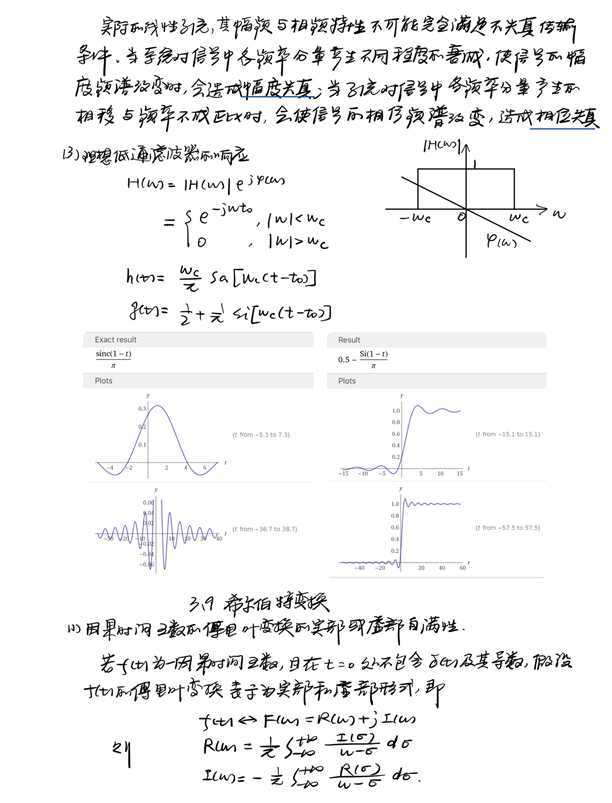 实际的线性系统,其幅频与相频特性不可能完全满足不失真传输
条件。当系统对信号中各频率分量产生不同程度的衰减,使信号的幅
度频谱改变时,会造成幅度失真;当系统对信号中各频率分量产生的
相移与频率不成正比时,会使信号的相位频谱改变,造成相位失真
(3) 理想低通滤波器的响应
|H(ω)|
H(ω) = |H(ω)| e^{jφ(ω)}
1
= { e^{-jωt₀}, |ω|<ω_c
0 , |ω|>ω_c
-ω_c 0 ω_c ω
φ(ω)
h(t) = ω_c/π Sa[ω_c(t-t₀)]
g(t) = 1/2 + 1/π Si[ω_c(t-t₀)]
Exact result
sinc(1 − t)/π
Plots
y
0.3
0.2
0.1
-4 -2 2 4 6 t
(t from −5.3 to 7.3)
y
0.06
0.04
0.02
-0.02
-0.04
-0.06
t
(t from −36.7 to 38.7)
Result
0.5 − Si(1 − t)/π
Plots
y
1.0
0.8
0.6
0.4
0.2
-15 -10 -5 5 10 15 t
(t from −15.1 to 15.1)
y
1.0
0.8
0.6
0.4
0.2
-40 -20 20 40 60 t
(t from −57.5 to 57.5)
3.9 希尔伯特变换
(1) 因果时间函数的傅里叶变换的实部或虚部自满性.
若f(t)为一因果时间函数,且在t=0处不包含δ(t)及其导数,假设
f(t)的傅里叶变换表示为实部和虚部形式,即
f(t) ↔ F(ω) = R(ω) + j I(ω)
则 R(ω) = 1/π ∫_{-∞}^{+∞} I(σ)/(ω-σ) dσ
I(ω) = - 1/π ∫_{-∞}^{+∞} R(σ)/(ω-σ) dσ.